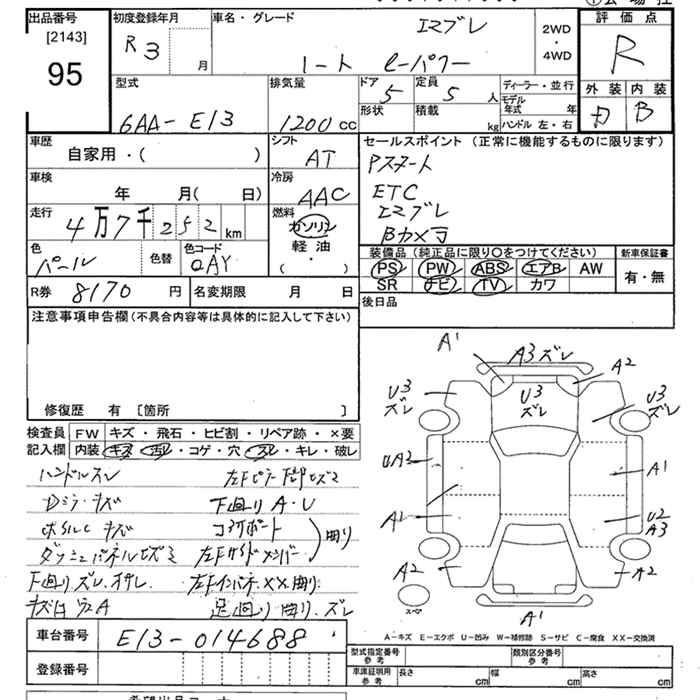 出品番号
[2143]
95
初度登録年月
R 3
月
車名・グレード
ノート e-パワー
2WD
・
4WD
評価点
R
外装 内装
B
型式
6AA-E13
排気量
1200 cc
ドア 5
定員 5 人
形状
積載 kg
ディーラー・並行
モデル年式 年
ハンドル 左・右
車歴
自家用・( )
シフト
AT
セールスポイント (正常に機能するものに限ります)
Pスタート
ETC
Bカメラ
車検
年 月( 日)
冷房
AAC
走行
4万7千252 km
燃料
ガソリン
軽油
( ・ )
色
パール
色替
色コード
QAY
装備品 (純正品に限り○をつけてください)
PS PW ABS エアB AW
SR ナビ TV カワ
新車保証書
有・無
R券 8170 円
名変期限 月 日
後日品
注意事項申告欄(不具合内容等は具体的に記入して下さい)
修復歴 有 [箇所 ]
検査員記入欄
FW キズ・飛石・ヒビ割・リペア跡・×要
内装 キズ・汚レ・コゲ・穴・スレ・キレ・破レ
ハンドルスレ
キズ
下回り A・U
コアサポート
曲り
左Fサイドメンバー
左Fインパネ XX 曲り
下回りズレ.
足回り曲り.ズレ
A1
A3ズレ
A2
U3
ズレ
U3
ズレ
U3
ズレ
UA2
A1
A2
U2
A3
A2
A2
スペア
A1
A-キズ E-エクボ U-凹み W-補修跡 S-サビ C-腐食 XX-交換済
車台番号
E13-014688
登録番号
型式指定番号
参考
類別区分番号
参考
車庫証明用
参考
長さ cm
幅 cm
高さ cm